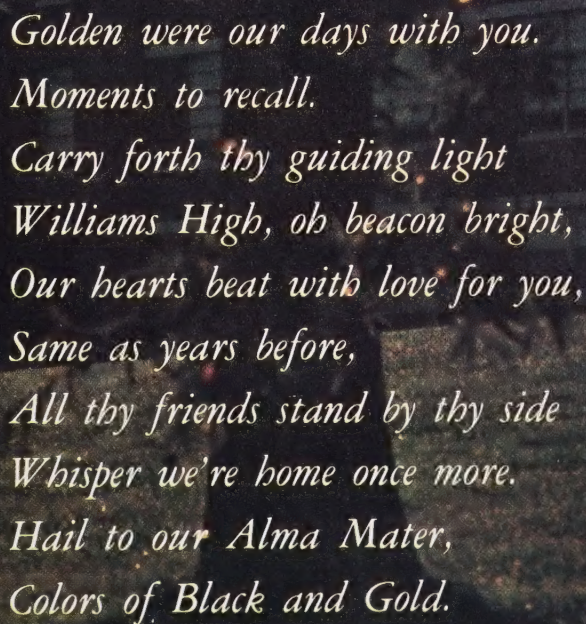 Golden were our days with you.
Moments to recall.
Carry forth thy guiding light
Williams High, oh beacon bright,
Our hearts beat with love for you,
Same as years before,
All thy friends stand by thy side
Whisper we're home once more.
Hail to our Alma Mater,
Colors of Black and Gold.